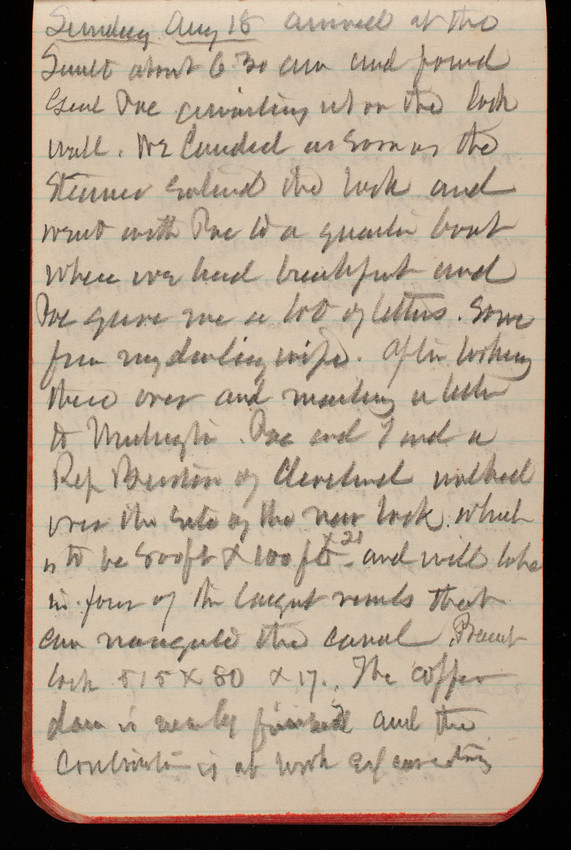 Sunday Aug 18 arrived at the
Sault about 6.30 am and found
Genl Poe awaiting us on the lock
wall. We landed as soon as the
steamer entered the lock and
went with Poe to a quarter boat
where we had breakfast and
Poe gave me a lot of letters. Some
from my darling wife. After looking
these over and mailing a letter
to Washington. Poe and I and a
Rep Burton of Cleveland walked
over the site of the new lock which
is to be 800ft x 100ft x 21 and will take
in four of the largest vessels that
can navigate the canal. Present
lock 515 x 80 x 17. The coffer
dam is nearly finished and the
Contractor is at work excavating